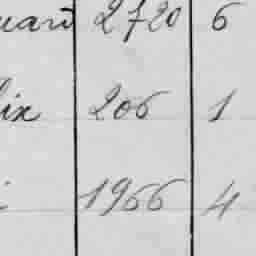 uard 2720 6
lix 206 1
i 1966 4